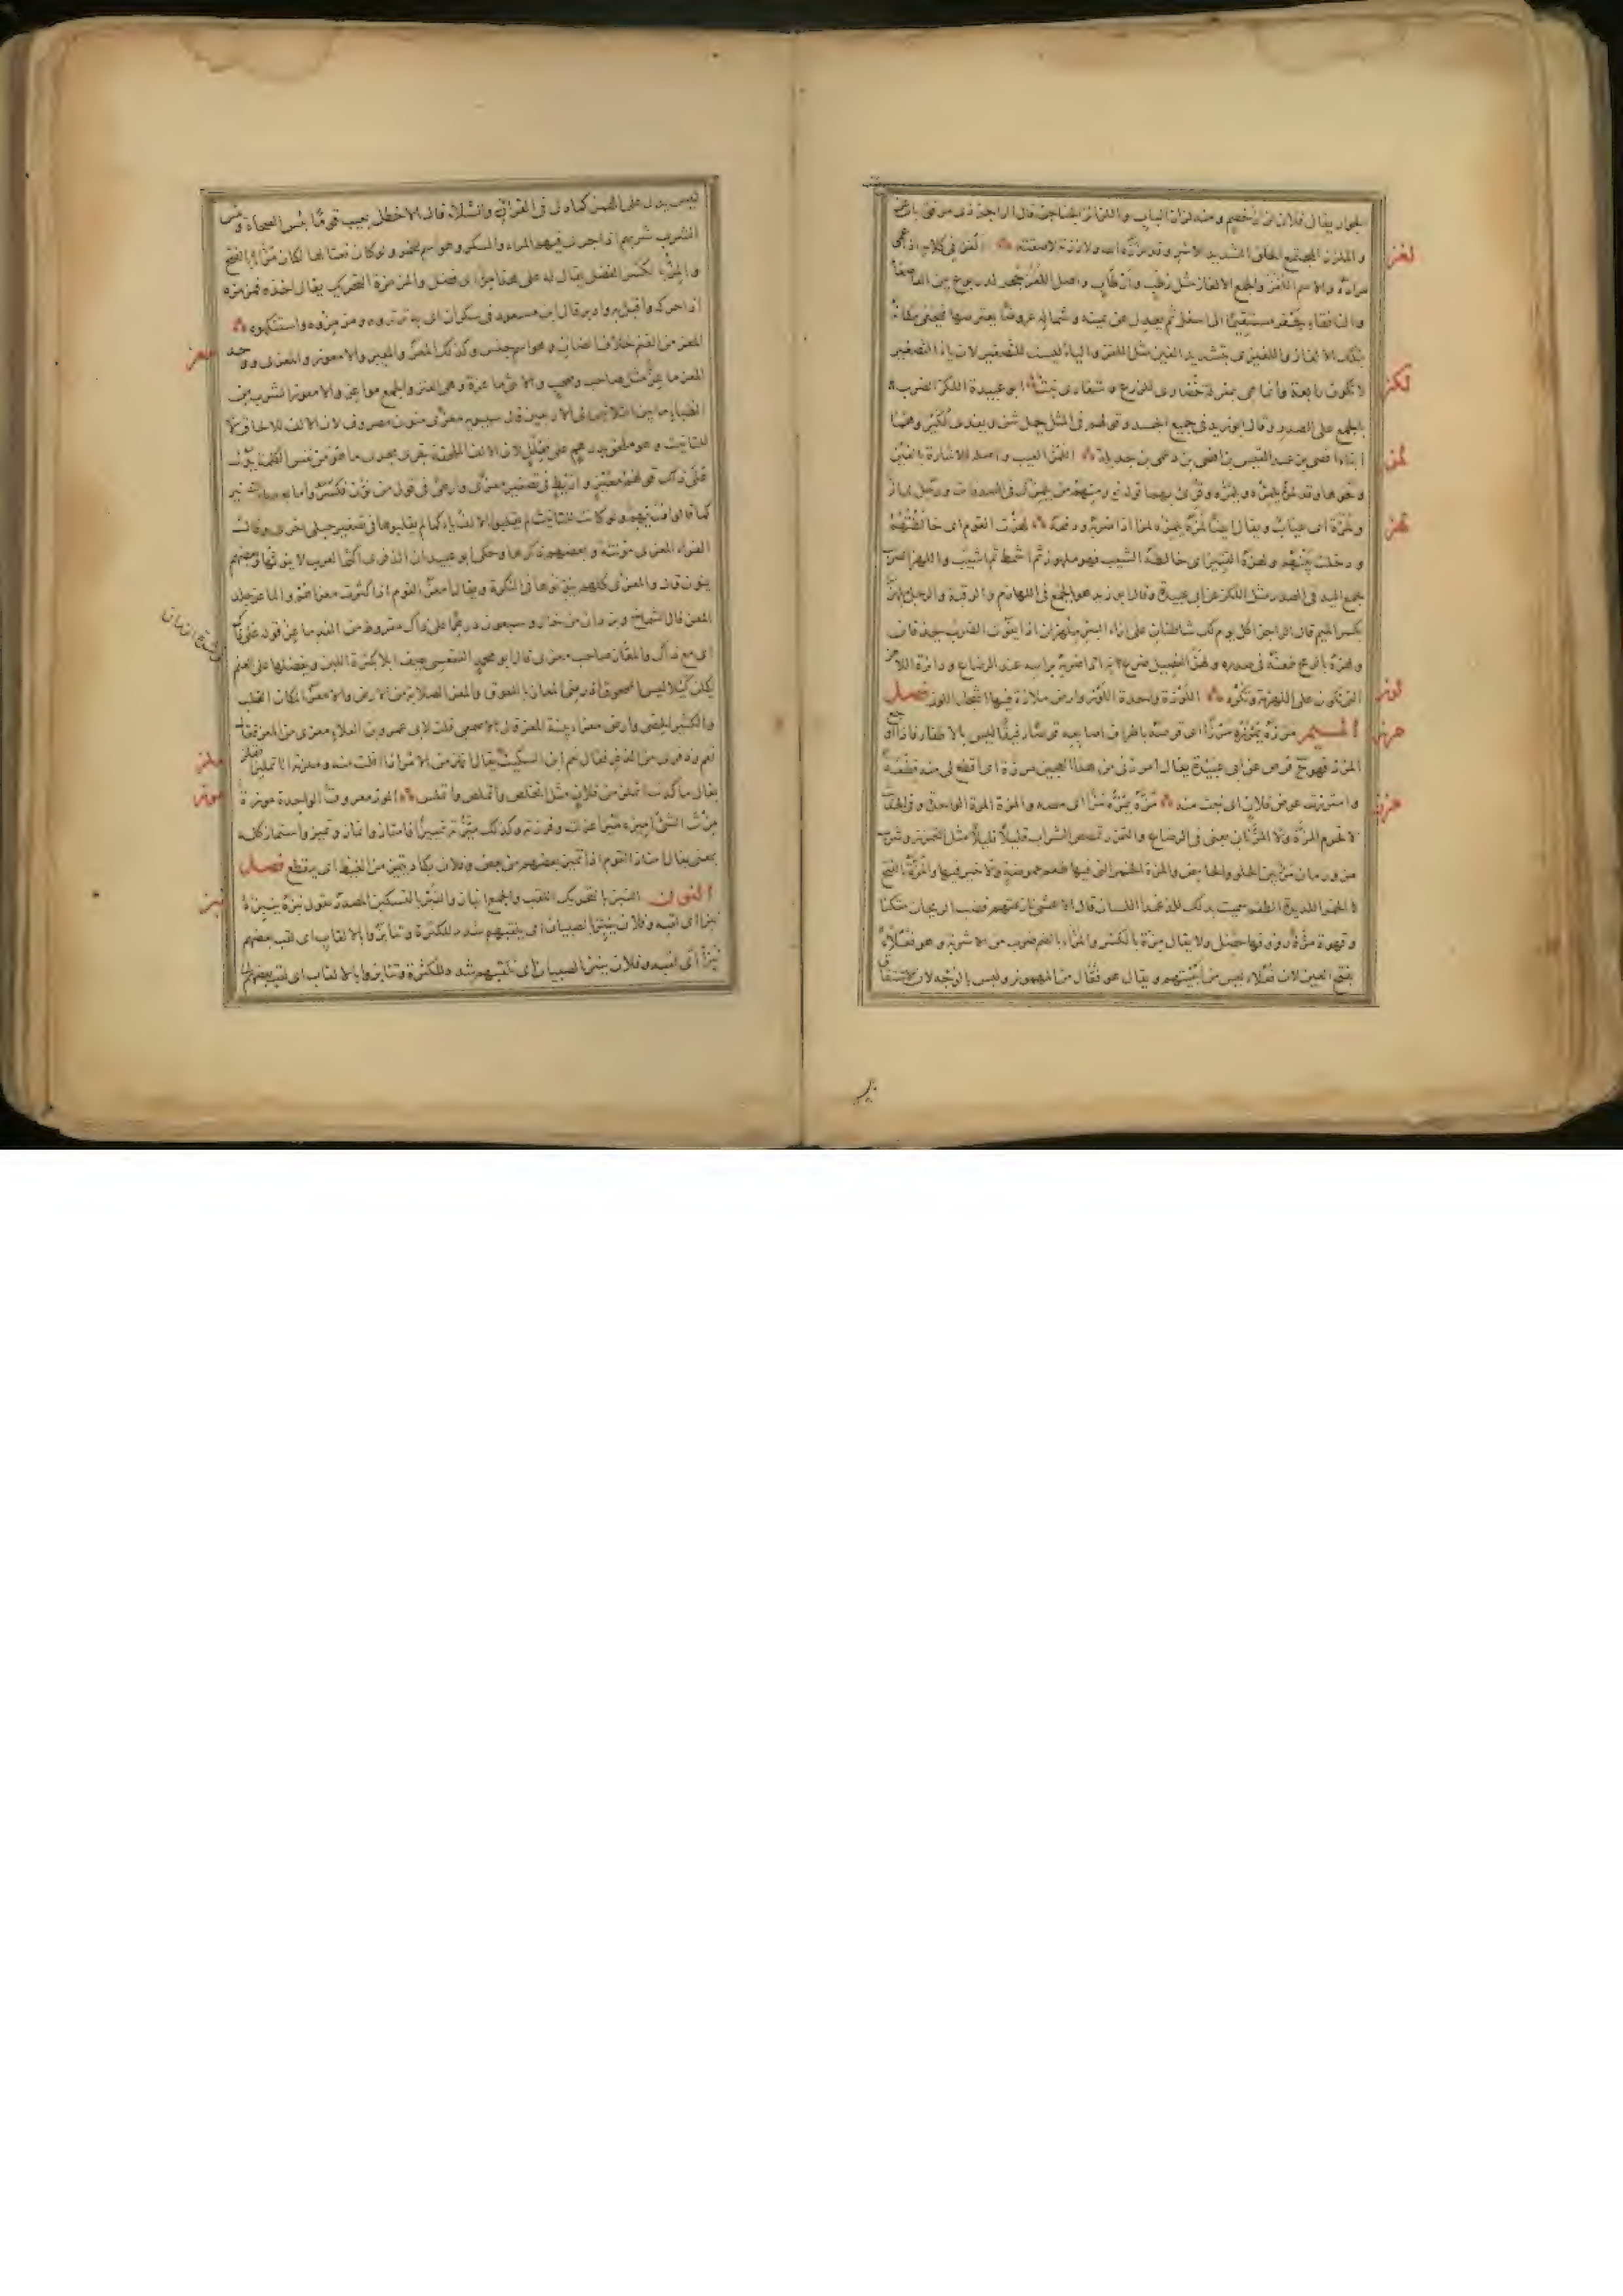 لغز
لكز
لمز
لهز
لوز
مرز
مزز
و الملزز المجتمع الخلق الشديد الاسر
مراده والاسم اللغز والجمع الالغاز مثل رطب وارطاب واصل اللغز جحر لليربوع بين القاصعاء
والنافقاء يحفر مستقيما الى اسفل ثم يعدل عن يمينه وشماله عروضا يعترضها فيخفى مكانه
بتلك الالغاز واللغيزى بتشديد الغين مثل اللغز والياء ليست للتصغير لان ياء التصغير
لا تكون رابعة وانما هى بمنزلة خضارى للزرع وشقارى نبت ابو عبيدة اللكز الضرب
بالجمع على الصدر وقال ابو زيد فى جميع الجسد وقولهم فى المثل يحمل شن ويفدى لكيز وهما
ابناء افصى بن عبد القيس بن افصى بن دعمى بن جديلة اللمز العيب واصله الاشارة بالعين
ونحوها وقد لمزه يلمزه ويلمزه وقرئ بهما قوله تع ومنهم من يلمزك فى الصدقات ورجل لماز
ولمزة اى عياب ويقال ايضا لمزه يلمزه لمزا اذا ضربه ودفعه لهزت القوم اى خالطتهم
ودخلت بينهم ولهزه القتير اى خالطه الشيب فهو ملهوز ثم اشمط ثم اشيب واللهز الضرب
بجمع اليد فى الصدر مثل اللكز عن ابى عبيدة وقال ابو زيد هو بالجمع فى اللهازم والرقبة والرجل ملهز
بكسر الميم قال الراجز اكل يوم لك شاطنان على ازاء البئر ملهزان اذا يفوت الضرب يحذفان
ولهزه بالرمح طعنه فى صدره ولهز الفصيل ضرع امه اذا ضربه براسه عند الرضاع ودائرة اللاهز
التى تكون على اللهزمة وتكره اللوزة واحدة اللوز وارض ملازة فيها اشجار اللوز فصل
الميم مرزه يمرزه مرزا اى قرصه باطراف اصابعه قرصا رفيقا ليس بالاظفار فاذا اوجع
المرز فهو ح قرص عن ابى عبيدة يقال امرز لى من هذا العجين مرزة اى اقطع لى منه قطعة
وامترزت عرض فلان اى نلت منه مزه يمزه مزا اى مصه والمزة المرة الواحدة وفى الحديث
لا تحرم المزة ولا المزتان يعنى فى الرضاع والتمزز تمصص الشراب قليلا قليلا مثل التمزر وشراب
مز ورمان مز بين الحلو والحامض والمزة الخمر التى فيها طعم حموضة ولا خير فيها والمزة بالفتح
الخمر اللذيذة الطعم سميت بذلك للذعها اللسان قال الاعشى نازعتهم قضب الريحان متكئا
وقهوة مزة راووقها خضل ولا يقال مزة بالكسر والمزاء بالضم ضرب من الاشربة وهو فعلاء
بفتح العين لان فعلاء ليس من ابنيتهم ويقال هو فعال من المهموز وليس بالوجه لان الاشتقاق
ليس يدل على الهمز كما دل فى القراء والسلاء قال الاخطل يعيب قوما بئس الصحاة وبئس
الشرب شربهم اذا جرت فيهم المزاء والسكر وهو اسم للخمر ولو كان نعتا لها لكان مزاء بالفتح
والمز بالكسر الفضل يقال له على هذا مز اى فضل والمزمزة التحريك يقال اخذه فمزمزه
اذا حركه واقبل به وادبر قال ابن مسعود فى سكران اتى به ترتروه ومزمزوه واستنكهوه
معز
المعز من الغنم خلاف الضان وهو اسم جنس وكذلك المعز والمعيز والامعوز والمعزى وواحد
المعز ماعز مثل صاحب وصحب والانثى ماعزة وهى العنز والجمع مواعز والامعوز السرب من
الظباء ما بين الثلاثين الى الاربعين قال سيبويه معزى منون مصروف لان الالف للالحاق لا
للتانيث وهو ملحق بدرهم على فعلل لان الالف الملحقة تجرى مجرى ما هو من نفس الكلمة يدل
على ذلك قولهم معيز واريط فى تصغير معزى وارطى فى قول من نون فكسروا ما بعد ياء التصغير
كما قالوا دريهم ولو كانت للتانيث لم يقلبوا الالف ياء كما لم يقلبوها فى تصغير حبلى واخرى وقال
الفراء المعزى مؤنثة وبعضهم ذكرها وحكى ابو عبيد ان الذفرى اكثر العرب لا ينونها وبعضهم
ينون قال والمعزى كلهم ينونونها فى النكرة ويقال امعز القوم اذا كثرت معزاهم والماعز جلد
المعز قال الشماخ وبردان من خال وسبعون درهما على ذاك مقروظ من القد ماعز قوله على ذاك
اى مع ذاك والمعاز صاحب معزى قال ابو محمد الفقعسى يصف ابلا بكثرة اللبن ويفضلها على الغنم
يكلن كيلا ليس بالممحوق اذ رضى المعاز باللعوق والمعز الصلابة من الارض والامعز المكان الصلب
والكثير الحصى وارض معزاء بينة المعز قال الاصمعى قلت لابى عمرو بن العلاء معزى من المعز فقال
نعم وذفرى من الذفر فقال نعم
ملز
موز
يقال ما كدت اتملز من فلان مثل اتخلص واتملص واتملس الموز معروف الواحدة موزة
مزت الشئ اميزه ميزا عزلته وفرزته وكذلك ميزته تمييزا فانماز وامتاز وتميز واستماز كله
بمعنى يقال امتاز القوم اذا تميز بعضهم من بعض وفلان يكاد يتميز من الغيظ اى يتقطع فصل
نبز
النون النبز بالتحريك اللقب والجمع الانباز والنبز بالتسكين المصدر تقول نبزه ينبزه
نبزا اى لقبه وفلان ينبز الصبيان اى يلقبهم شدد للكثرة وتنابزوا بالالقاب اى لقب بعضهم
نبزا اى لقبه وفلان ينبز الصبيان اى يلقبهم شدد للكثرة وتنابزوا بالالقاب اى لقب بعضهم